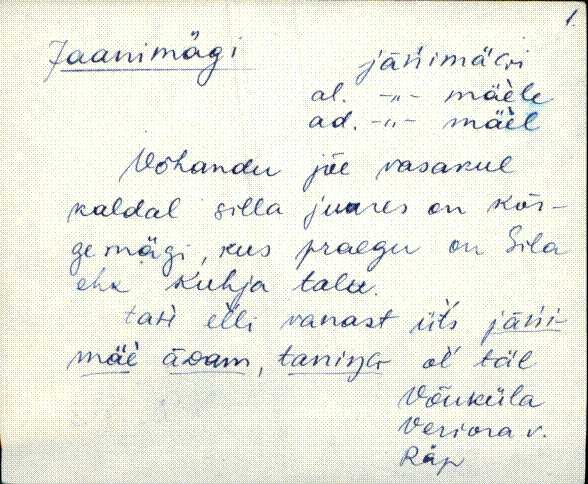 1.
Jaanimägi jäńimägi
al. -„- mäe̬le
ad. -„- mäe̬l
Võhandu jõe vasakul
kaldal silla juures on kõr-
ge mägi, kus praegu on Sila
ehk Kuhja talu.
elli vanast üt́s jäńi-
mäe adam, oĺ täl
Võuküla
Veriora v.
Räp